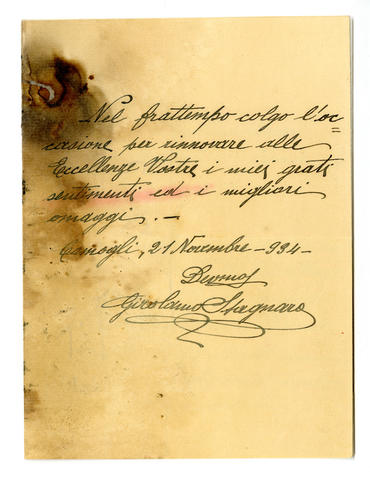 Nel frattempo colgo l'oc=
casione per rinnovare alle
Eccellenze Vostre i miei grati
sentimenti ed i migliori
omaggi. -
Camogli, 21 Novembre - 934 -
Girolamo Stagnaro